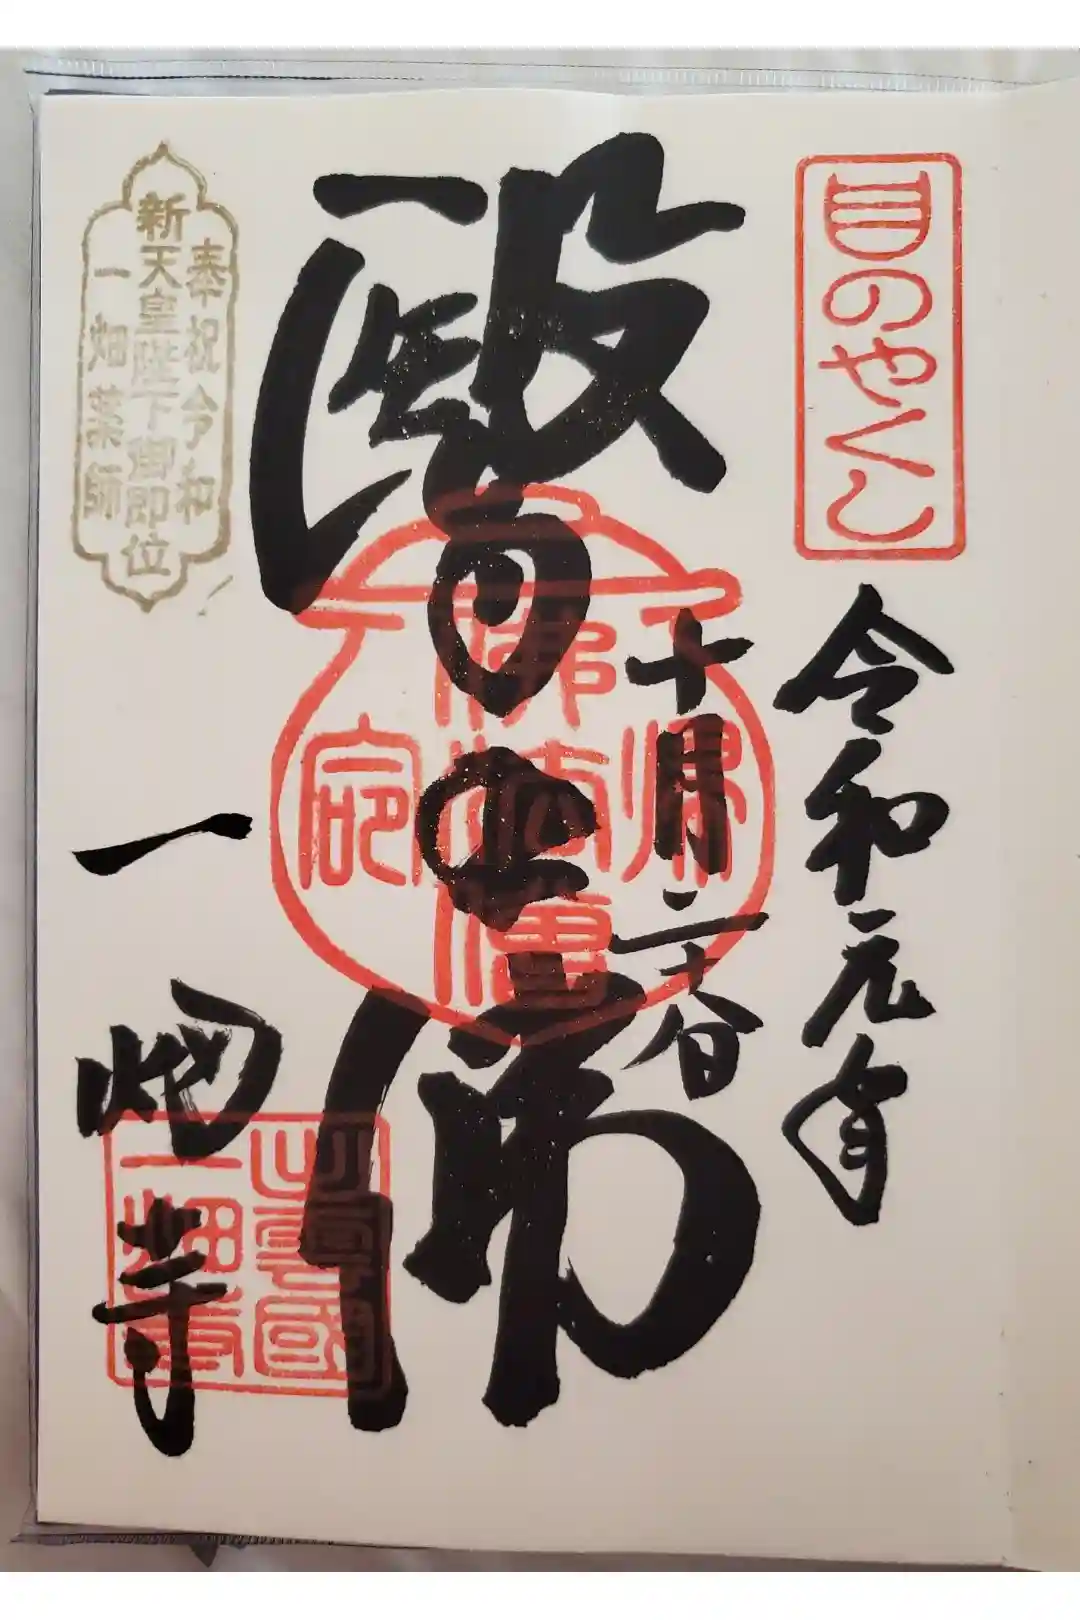 目のやくし
令和元年
十月二十六日
醫王佛
佛法僧
一畑寺
出雲國
一畑寺
奉祝令和
新天皇陛下御即位
一畑薬師